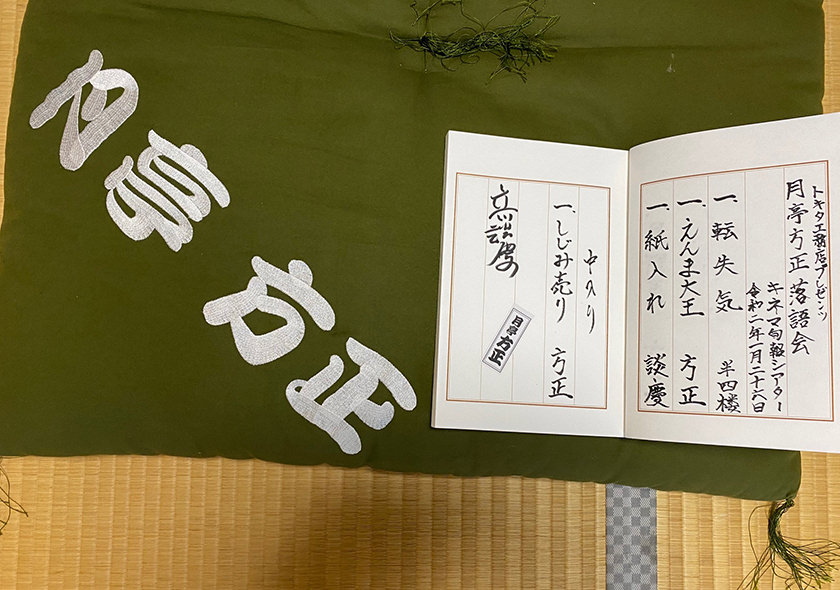 月亭方正
トキタ工務店プレゼンツ
月亭方正落語会
キネマ旬報シアター
令和二年一月二十六日
一、転失気 半四楼
一、えんま大王 方正
一、紙入れ 談慶
中入り
一、しじみ売り 方正
立川談慶
月亭方正